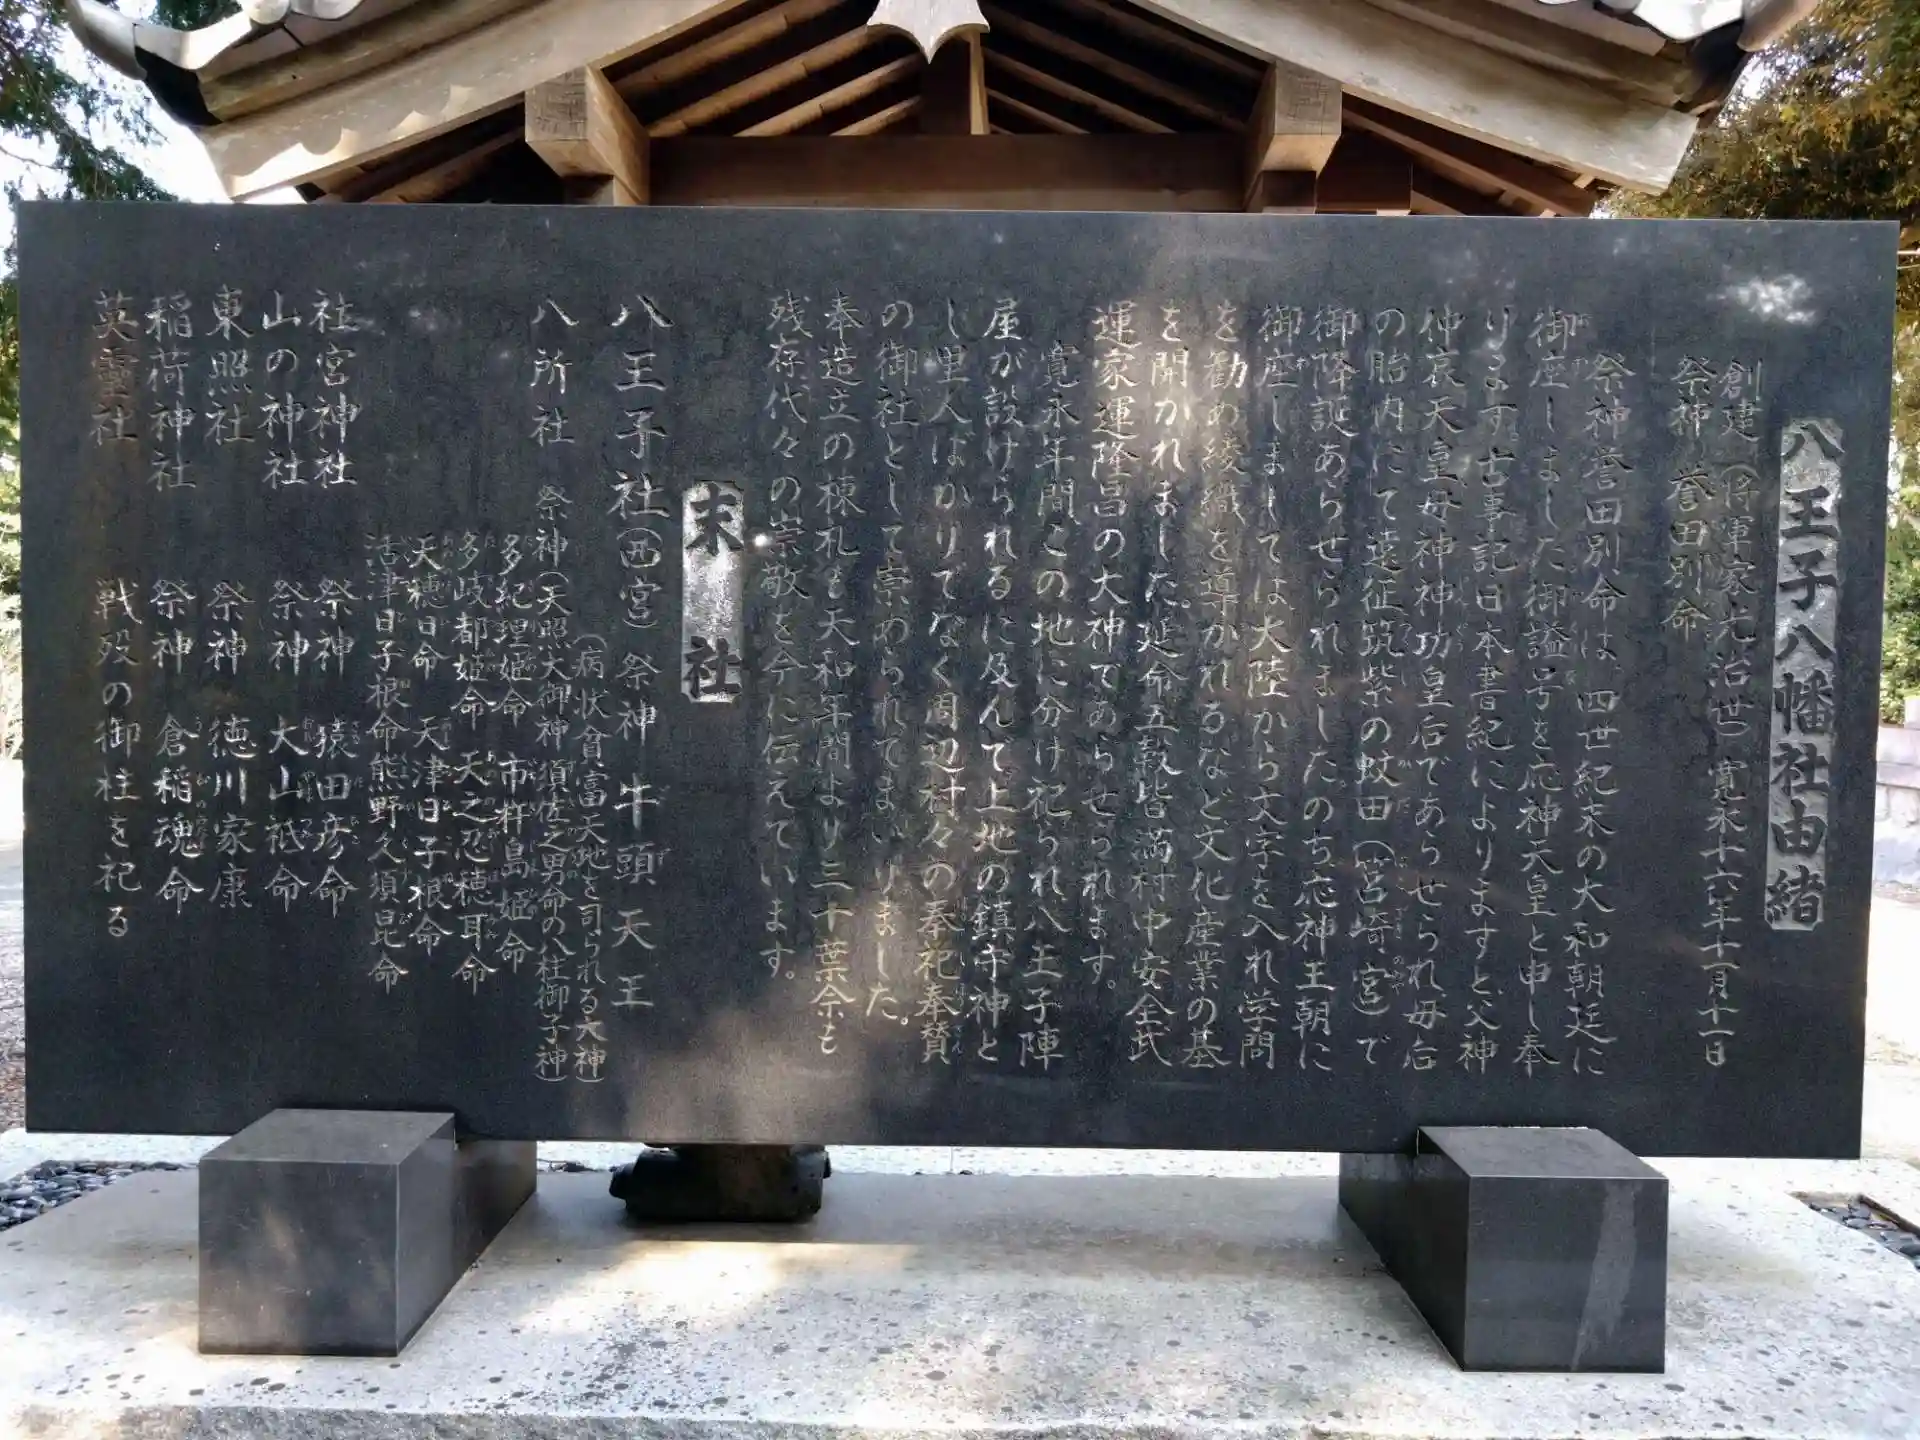 八王子八幡社由緒
創建(将軍家光治世)寛永十六年十一月十一日
祭神 誉田別命
祭神誉田別命は、四世紀末の大和朝廷に
御座しました御謚号を応神天皇と申し奉
ります。古事記日本書紀によりますと父神
仲哀天皇母神神功皇后であらせられ母后
の胎内にて遠征筑紫の蚊田(筥崎宮)で
御降誕あらせられました。のち応神王朝に
御座しましては大陸から文字を入れ学問
を勧め綾織を導かれるなど文化産業の基
を開かれました。延命五穀皆満村中安全氏
運家運隆昌の大神であらせられます。
寛永年間この地に分け祀られ八王子陣
屋が設けられるに及んで上地の鎮守神と
し里人ばかりでなく周辺村々の奉祀奉賛
の御社として崇められてまいりました。
奉造立の棟札も天和年間より三十葉余も
残存代々の崇敬を今に伝えています。
末社
八王子社(西宮) 祭神 牛頭天王
(病状貧富天地を司られる大神)
八所社 祭神(天照大御神 須佐之男命の八柱御子神)
多紀理姫命 市杵島姫命
多岐都姫命 天之忍穂耳命
天穂日命 天津日子根命
活津日子根命 熊野久須昆命
社宮神社 祭神 猿田彦命
山の神社 祭神 大山祇命
東照社 祭神 徳川家康
稲荷神社 祭神 倉稲魂命
英霊社 戦殁の御柱を祀る